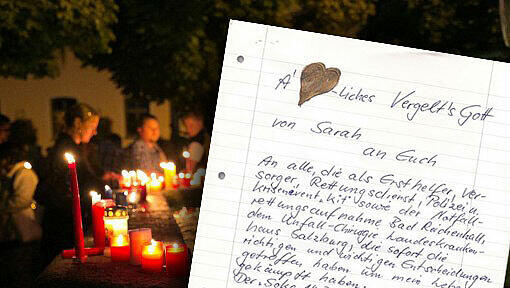 A' -liches Vergelt's Gott
von Sarah
an Euch
An alle, die als Ersthelfer, Ver-
sorger, Rettungsdienst, Polizei,
Krisenevent. Kit sowie der Notfall-
rettungsaufnahme Bad Reichenhall,
dem Unfall-Chirurgie Landeskranken-
haus Salzburg, die sofort die
richtigen und wichtigen Entscheidungen
getroffen haben um mein Leben
gekämpft haben.
Der